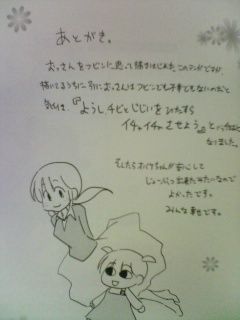 あとがき。
おっさんをフビンに思って描きはじめたこのマンガですが
描いてるうちに別におっさんはフビンでも不幸でもないのだと
気付き、『ようし、チビとじじいをひたすら
イチャイチャさせよう。』と
なりました。
そしたらおイケちゃんが安心して
じょうぶつ出来たみたいなので
よかったです。
みんな幸せです。